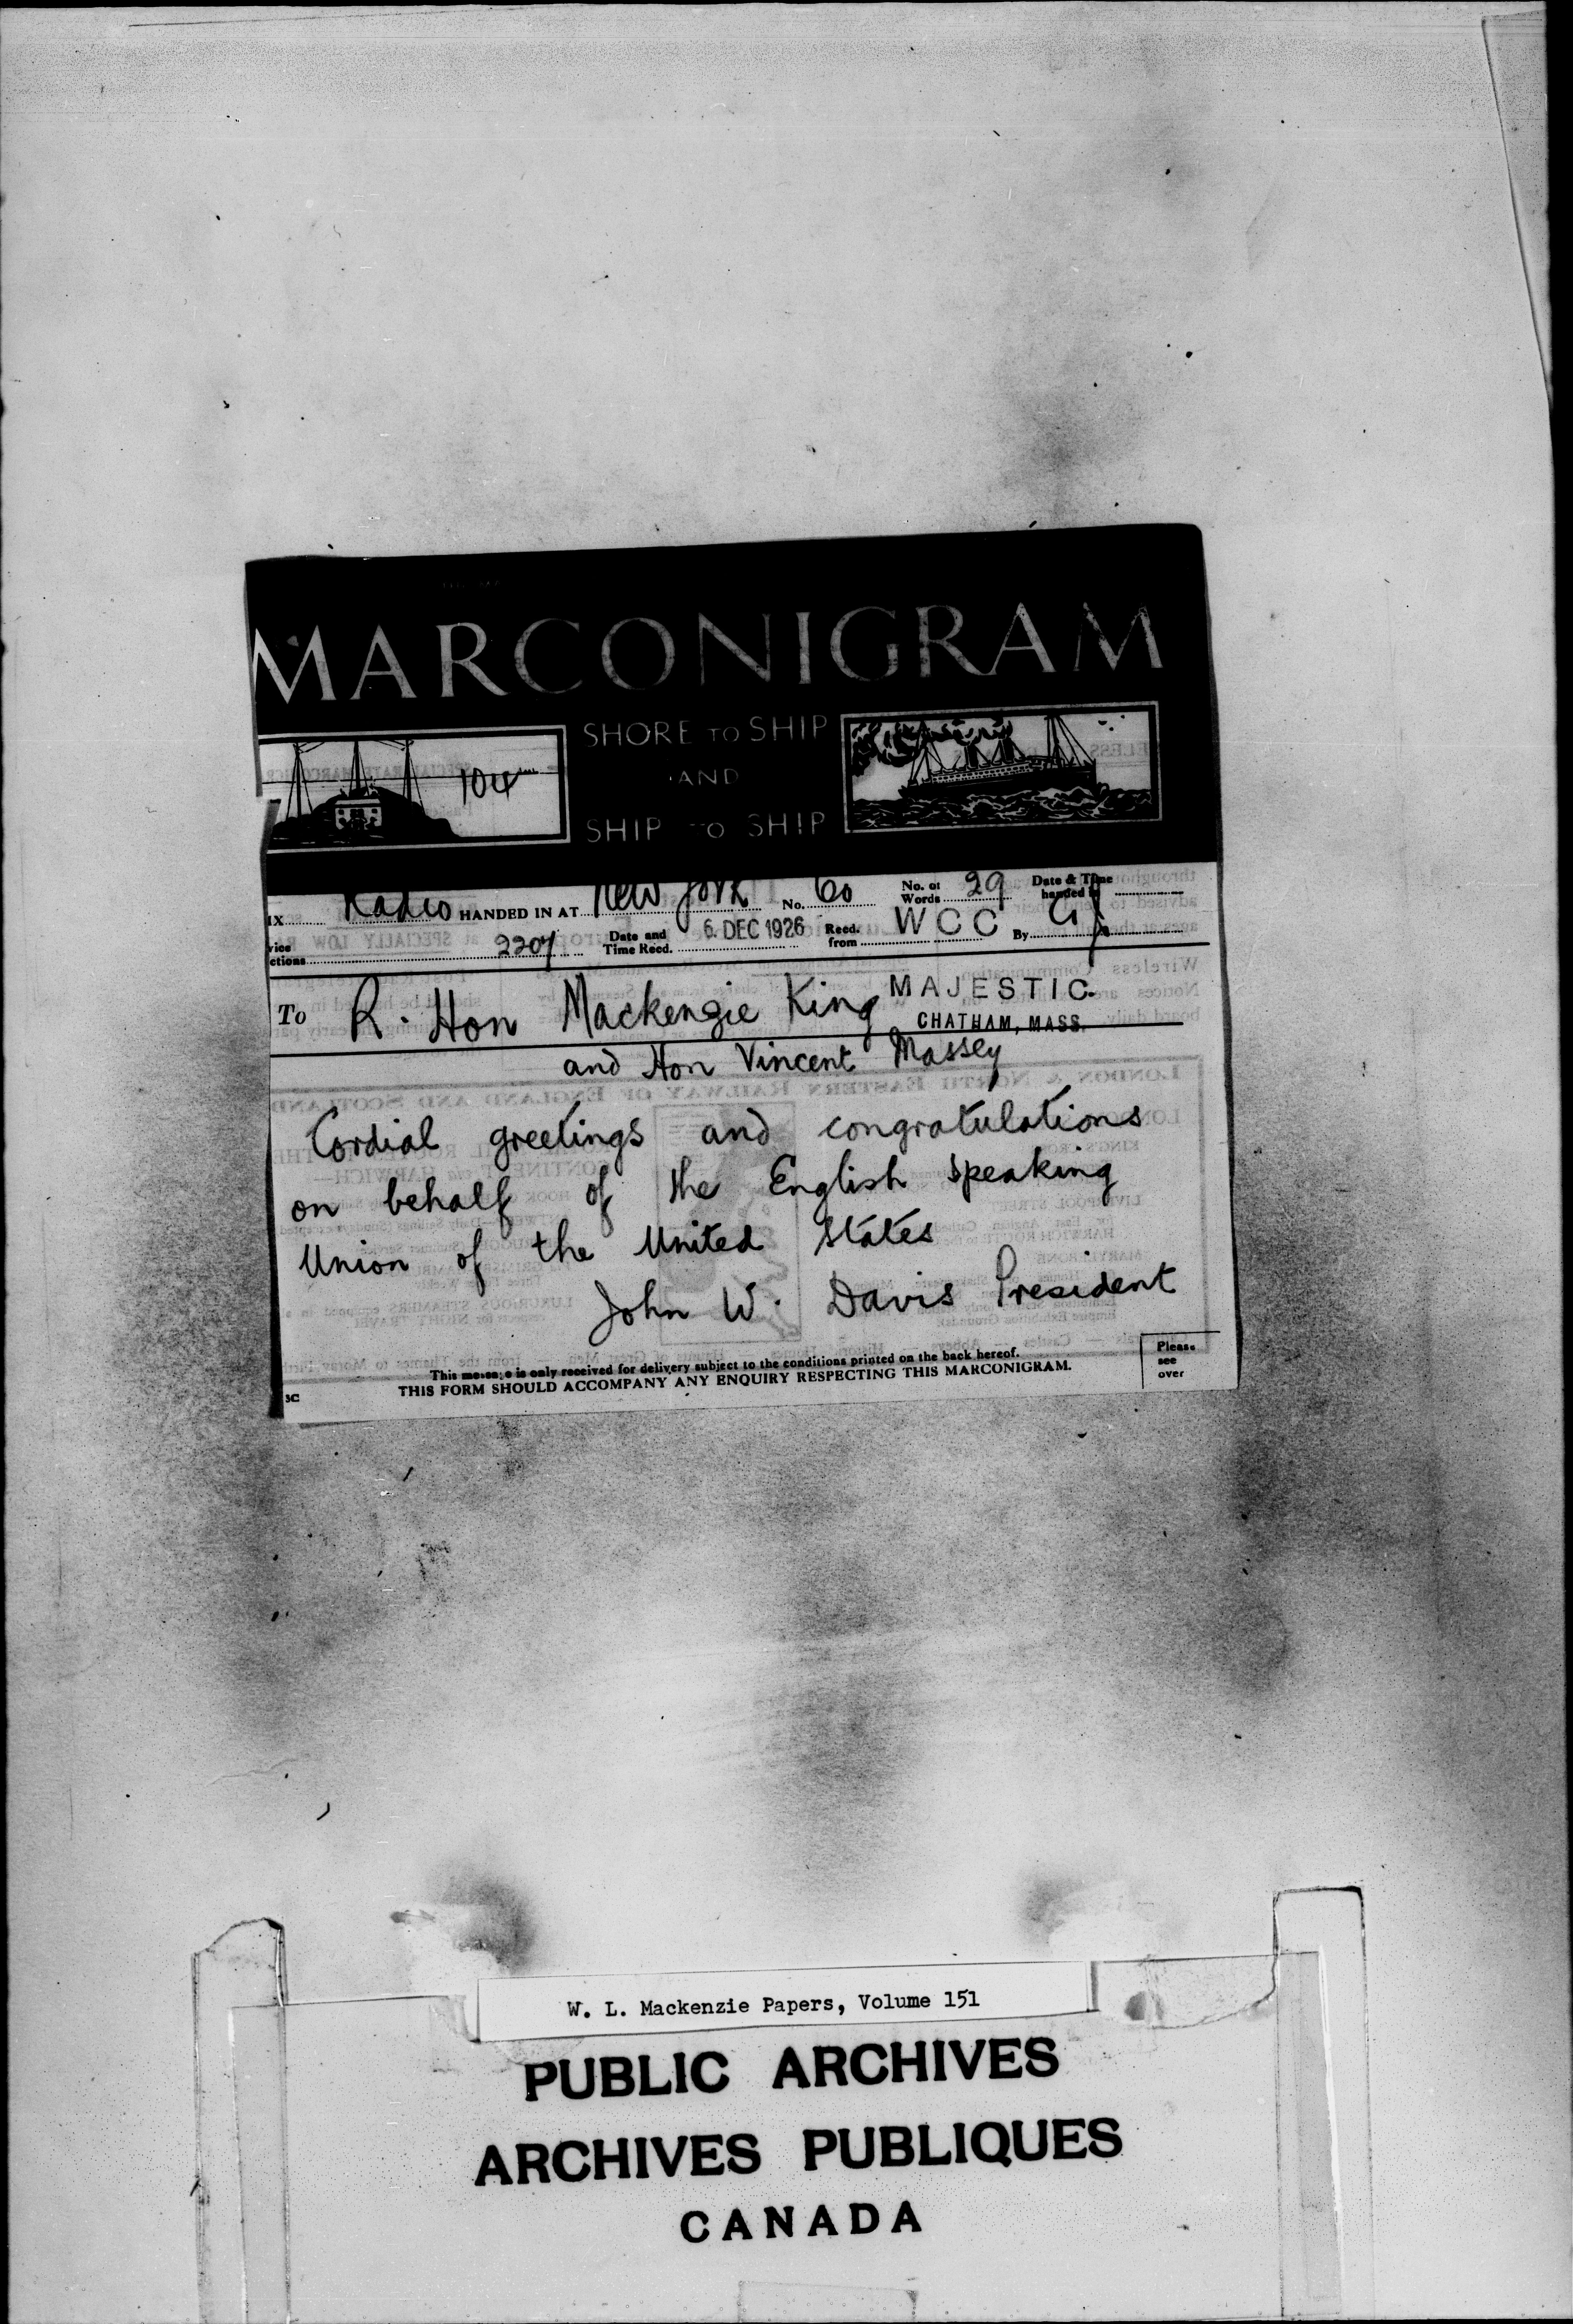 MARCONIGRAM
SHORE TO SHIP
AND
SHIP TO SHIP
104
IX Radio HANDED IN AT New York No. 60 No. of Words 29 Date & Time handed in
vice ctions 2207 Date and Time Recd. 6. DEC 1926 Recd. from WCC By
To R. Hon Mackenzie King MAJESTIC.
CHATHAM, MASS.
and Hon Vincent Massey
Cordial greetings and congratulations
on behalf of the English speaking
Union of the United States
John W. Davis President
This message is only received for delivery subject to the conditions printed on the back hereof.
THIS FORM SHOULD ACCOMPANY ANY ENQUIRY RESPECTING THIS MARCONIGRAM.
Please
see
over
3C
W. L. Mackenzie Papers, Volume 151
PUBLIC ARCHIVES
ARCHIVES PUBLIQUES
CANADA